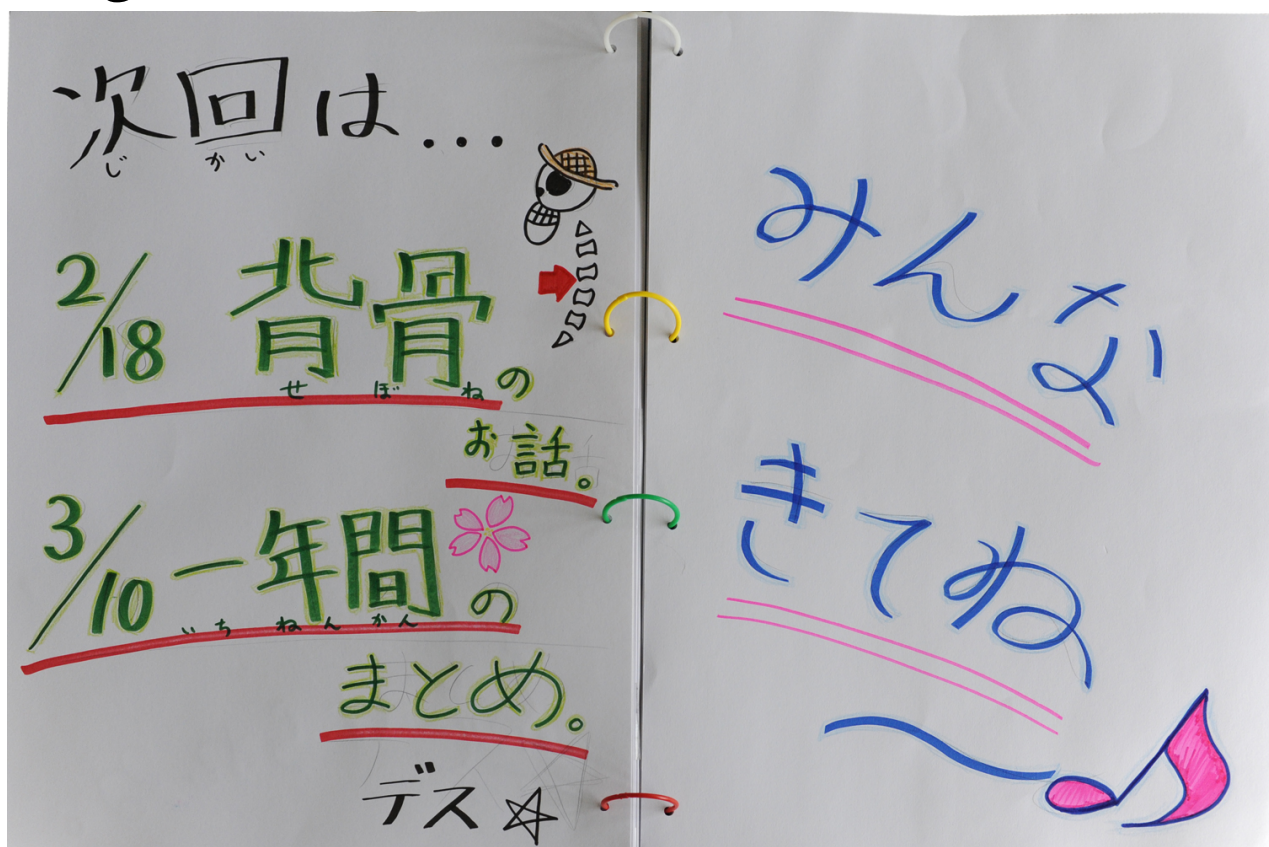 次回は...
じ かい
2/18 背骨の
せ ぼ ね
お話。
3/10 一年間の
いち ねん かん
まとめ。
デス☆
みんな
きてね〜♪